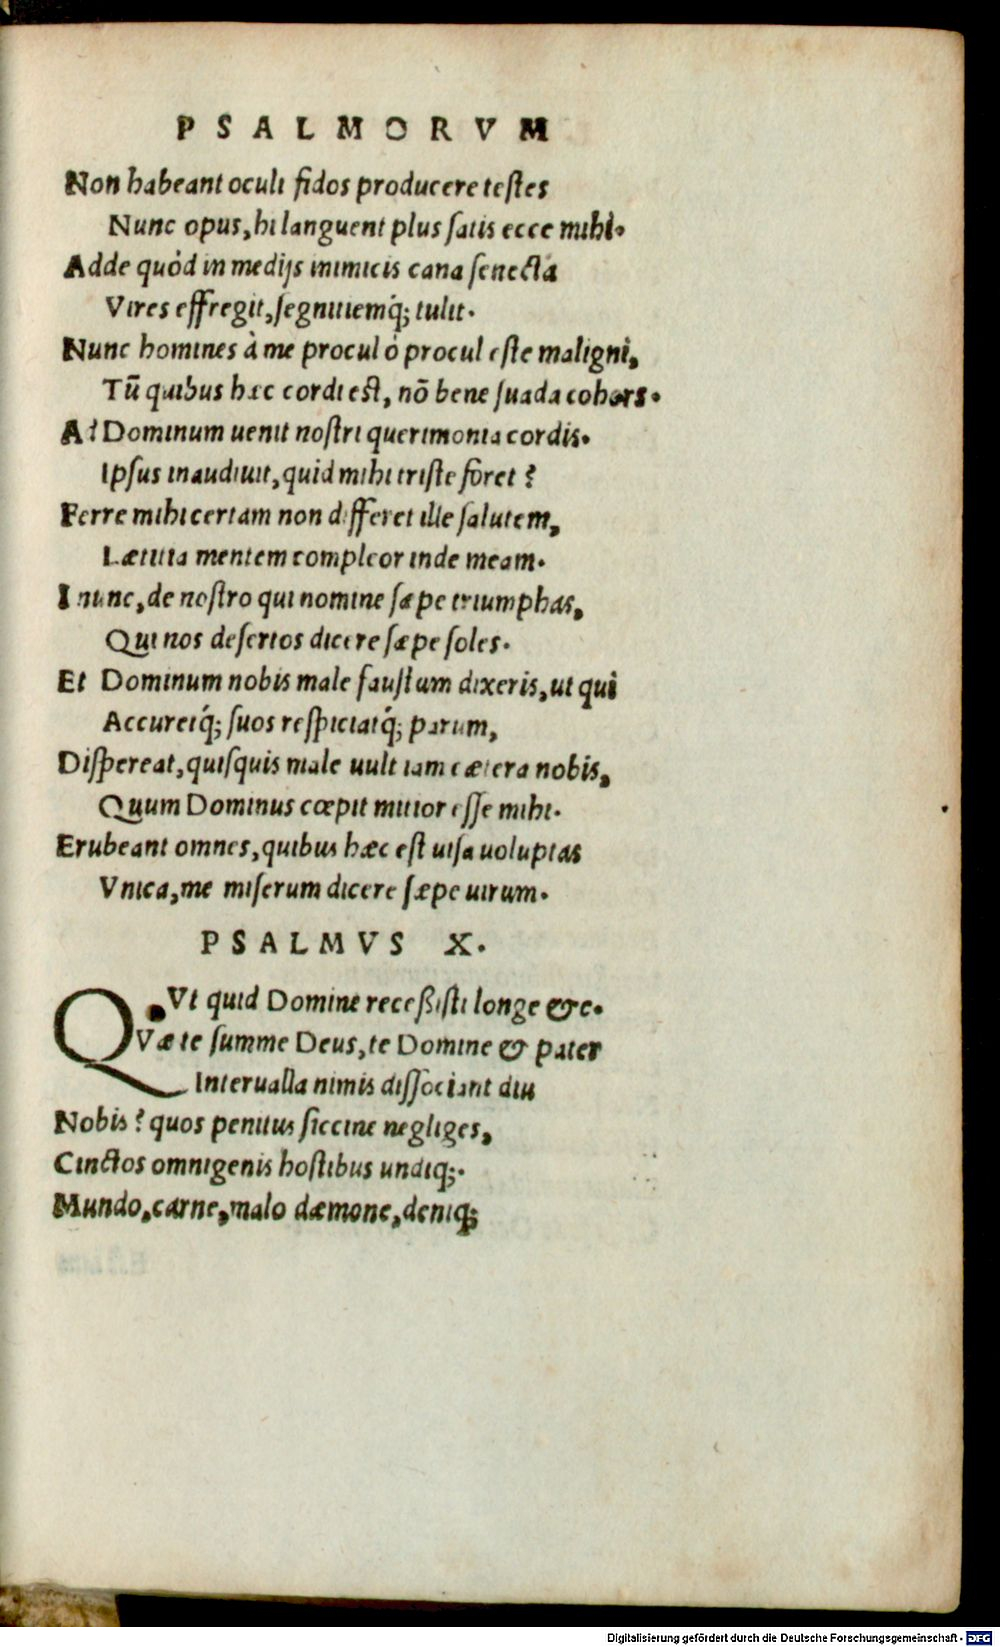 PSALMORVM
Non habeant oculi fidos producere testes
Nunc opus, hi languent plus satis ecce mihi.
Adde quòd in medijs inimicis cana senecta
Vires effregit, segnitiemq́; tulit.
Nunc homines à me procul ò procul este maligni,
Tū quibus hæc cordi est, nō bene suada cohors.
Ad Dominum uenit nostri querimonia cordis.
Ipsus inaudiuit, quid mihi triste foret?
Ferre mihi certam non differet ille salutem,
Lætitia mentem compleor inde meam.
I nunc, de nostro qui nomine sæpe triumphas,
Qui nos desertos dicere sæpe soles.
Et Dominum nobis male faustum dixeris, ut qui
Accuretq́; suos respiciatq́; parum,
Dispereat, quisquis male uult iam cætera nobis,
Quum Dominus cœpit mitior esse mihi.
Erubeant omnes, quibus hæc est uisa uoluptas
Vnica, me miserum dicere sæpe uirum.
PSALMVS X.
Vt quid Domine recessisti longe &c.
QVæ te summe Deus, te Domine & pater
Interualla nimis dissociant diu
Nobis? quos penitus siccine negliges,
Cinctos omnigenis hostibus undiq;.
Mundo, carne, malo dæmone, deniq;
Digitalisierung gefördert durch die Deutsche Forschungsgemeinschaft - DFG